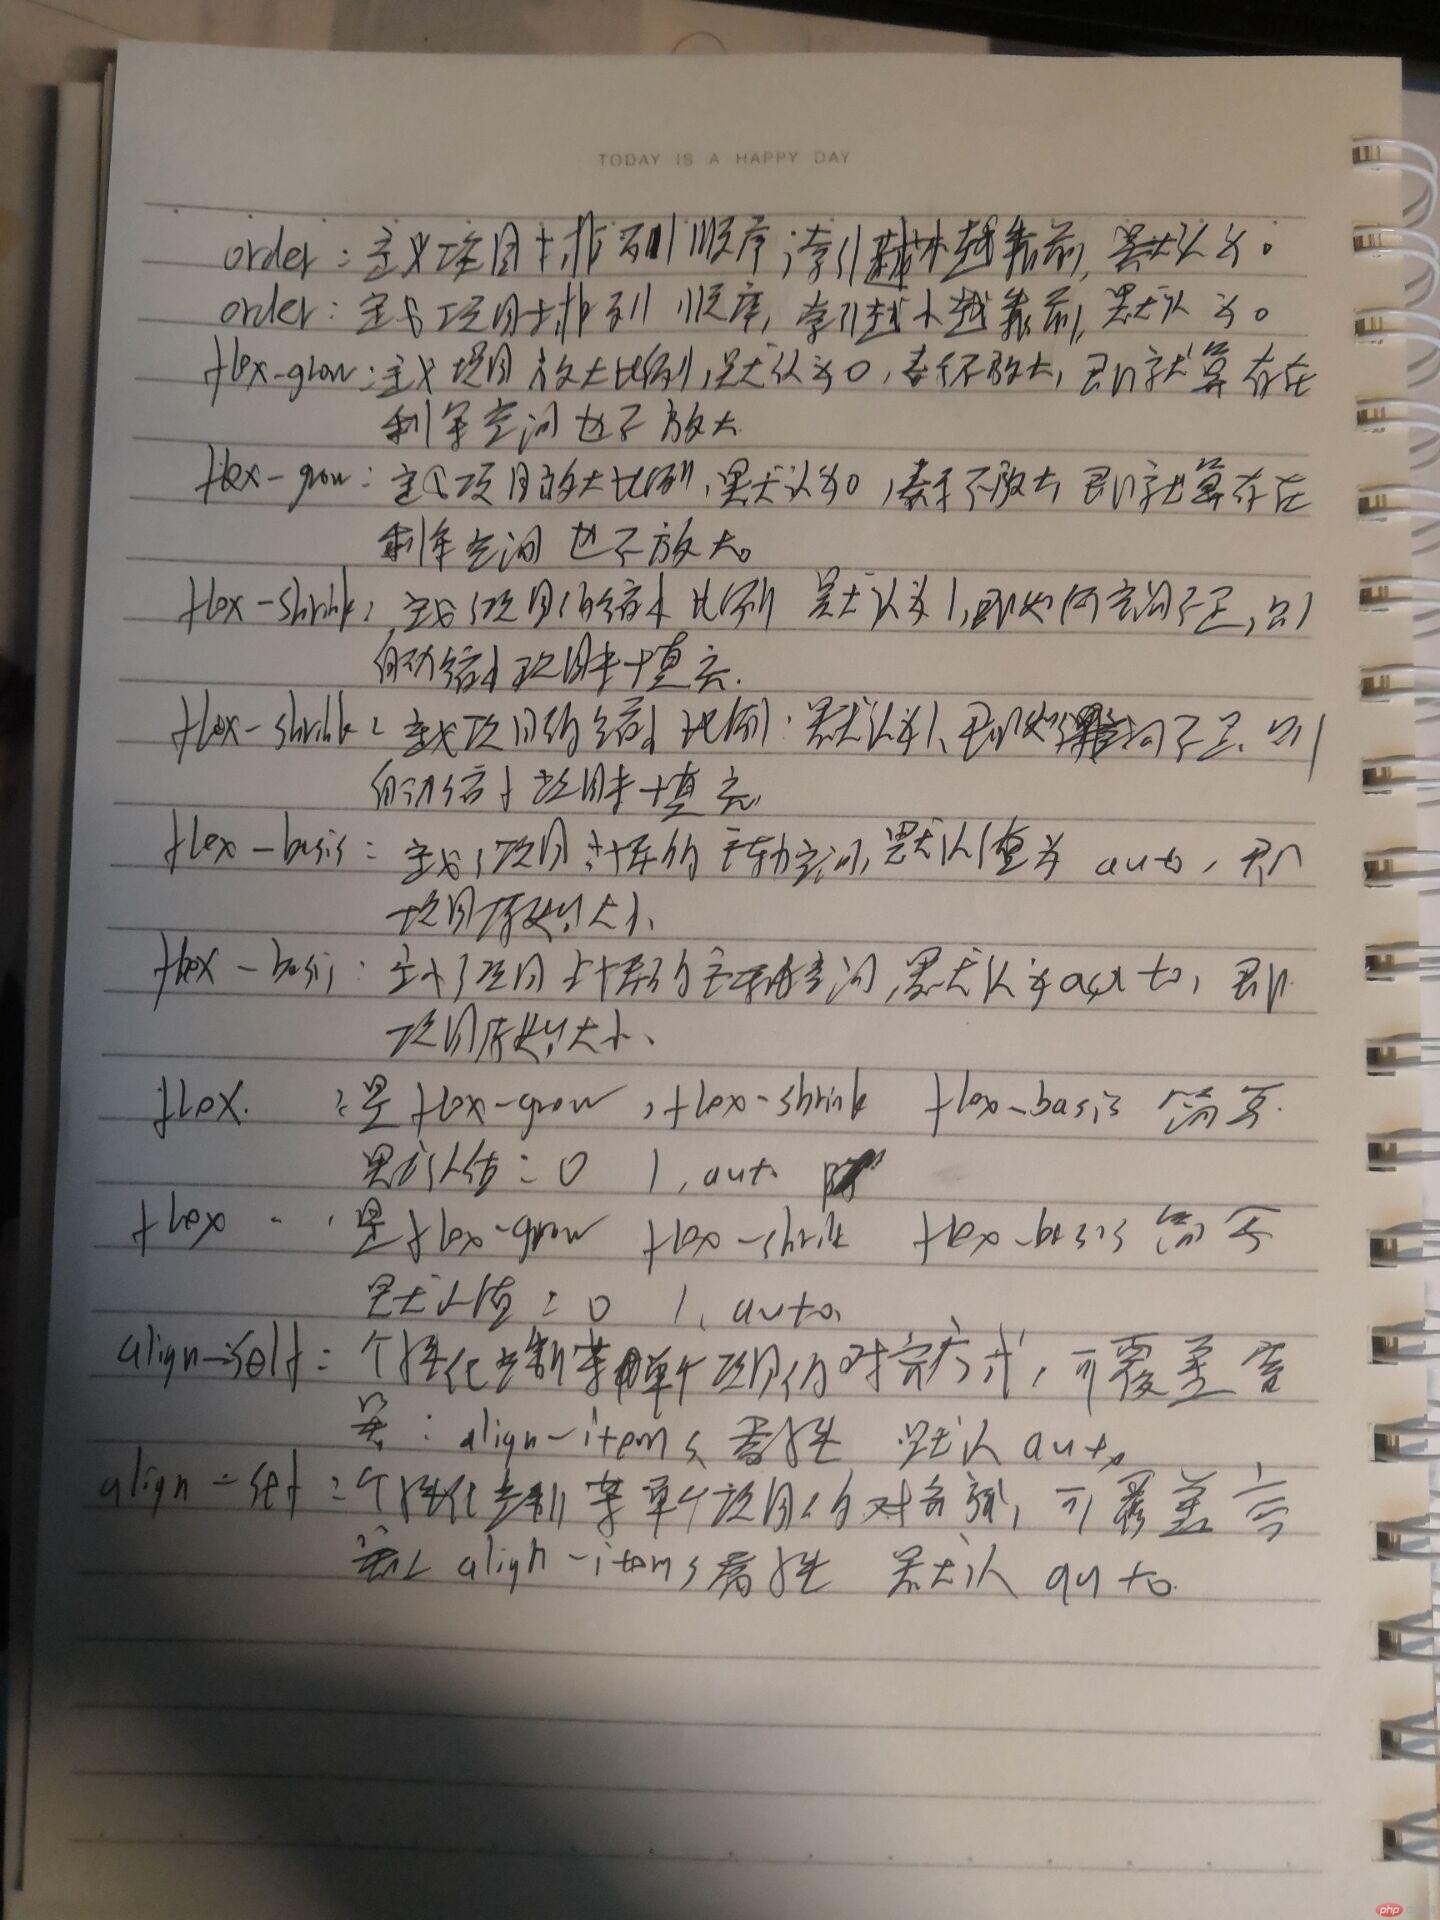 TODAY IS A HAPPY DAY
order:定义项目排列顺序,索引越小越靠前,默认为0
order:定义项目排列顺序,索引越小越靠前,默认为0
flex-grow:定义项目放大比例,默认为0,表示不放大,即就算存在
剩余空间也不放大
flex-grow:定义项目放大比例,默认为0,表示不放大 即就算存在
剩余空间也不放大。
flex-shrink:定义了项目的缩小比例 默认为1,即如何空间不足,则
自动缩小项目来填充.
flex-shrink:定义项目的缩小比例:默认为1、即如空间不足、则
自动缩小项目来填充
flex-basis:定义了项目占据的主轴空间,默认值为auto,即
项目原始大小、
flex-basis:定义了项目占据的主轴空间,默认为auto,即
项目原始大小、
flex. :是flex-grow,flex-shrink flex-basis 简写.
默认值:0 1,auto
flex 是flex-grow flex-shrik flex-basis 简写
默认值:0 1、auto
align-self:个性化控制某单个项目的对齐方式,可覆盖容
器:align-items属性 默认auto
align-self:个性化控制某单个项目的对齐方式,可覆盖容
器 align-items属性 默认auto
php